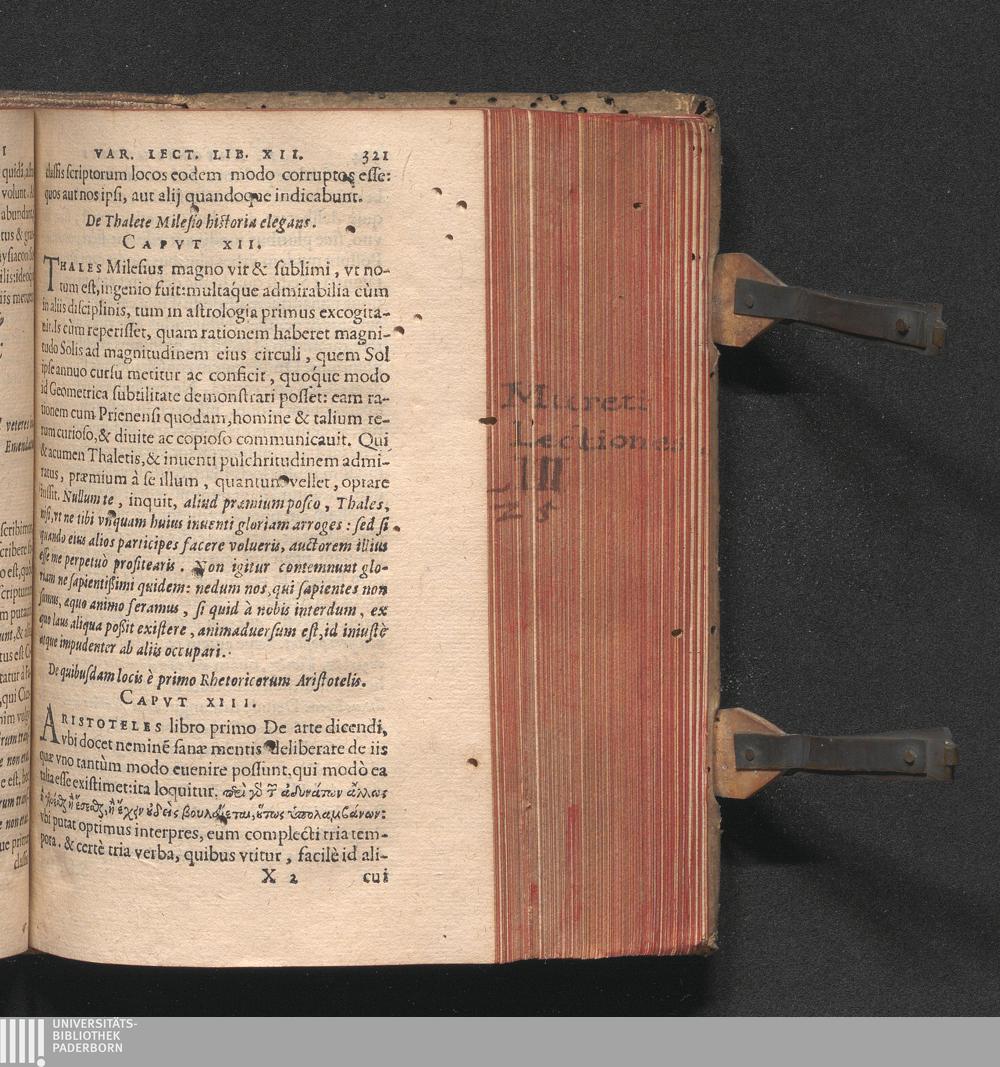 VAR. LECT. LIB. XII. 321
classis scriptorum locos eodem modo corruptos esse:
quos aut nos ipsi, aut alij quandoque indicabunt.
De Thalete Milesio historia elegans.
CAPVT XII.
THALES Milesius magno vir & sublimi, vt no-
tum est, ingenio fuit: multáque admirabilia cùm
in aliis disciplinis, tum in astrologia primus excogita-
uit. Is cùm reperisset, quam rationem haberet magni-
tudo Solis ad magnitudinem eius circuli, quem Sol
ipse annuo cursu metitur ac conficit, quóque modo
id Geometrica subtilitate demonstrari posset: eam ra-
tionem cum Prienensi quodam, homine & talium re-
rum curioso, & diuite ac copioso communicauit. Qui
& acumen Thaletis, & inuenti pulchritudinem admi-
ratus, præmium à se illum, quantum vellet, optare
iussit. Nullum te, inquit, aliud præmium posco, Thales,
nisi, vt ne tibi vnquam huius inuenti gloriam arroges: sed si
quando eius alios participes facere volueris, auctorem illius
esse me perpetuò profitearis. Non igitur contemnunt glo-
riam ne sapientissimi quidem: nedum nos, qui sapientes non
sumus, æquo animo feramus, si quid à nobis interdum, ex
quo laus aliqua possit existere, animaduersum est, id iniustè
atque impudenter ab aliis occupari.
De quibusdam locis è primo Rhetoricorum Aristotelis.
CAPVT XIII.
ARISTOTELES libro primo De arte dicendi,
vbi docet neminẽ sanæ mentis deliberare de iis
quæ vno tantùm modo euenire possunt, qui modò ea
talia esse existimet: ita loquitur. ἀδυνάτων ἄλλως
ἢ ἢ ἔσεσθαι, ἢ ἔχειν οὐδεὶς βουλεύεται, οὕτως ὑπολαμβάνων:
vbi putat optimus interpres, eum complecti tria tem-
pora. & certè tria verba, quibus vtitur, facilè id ali-
X 2 cui
Mureti
Lectiones
III
25
UNIVERSITÄTS-
BIBLIOTHEK
PADERBORN